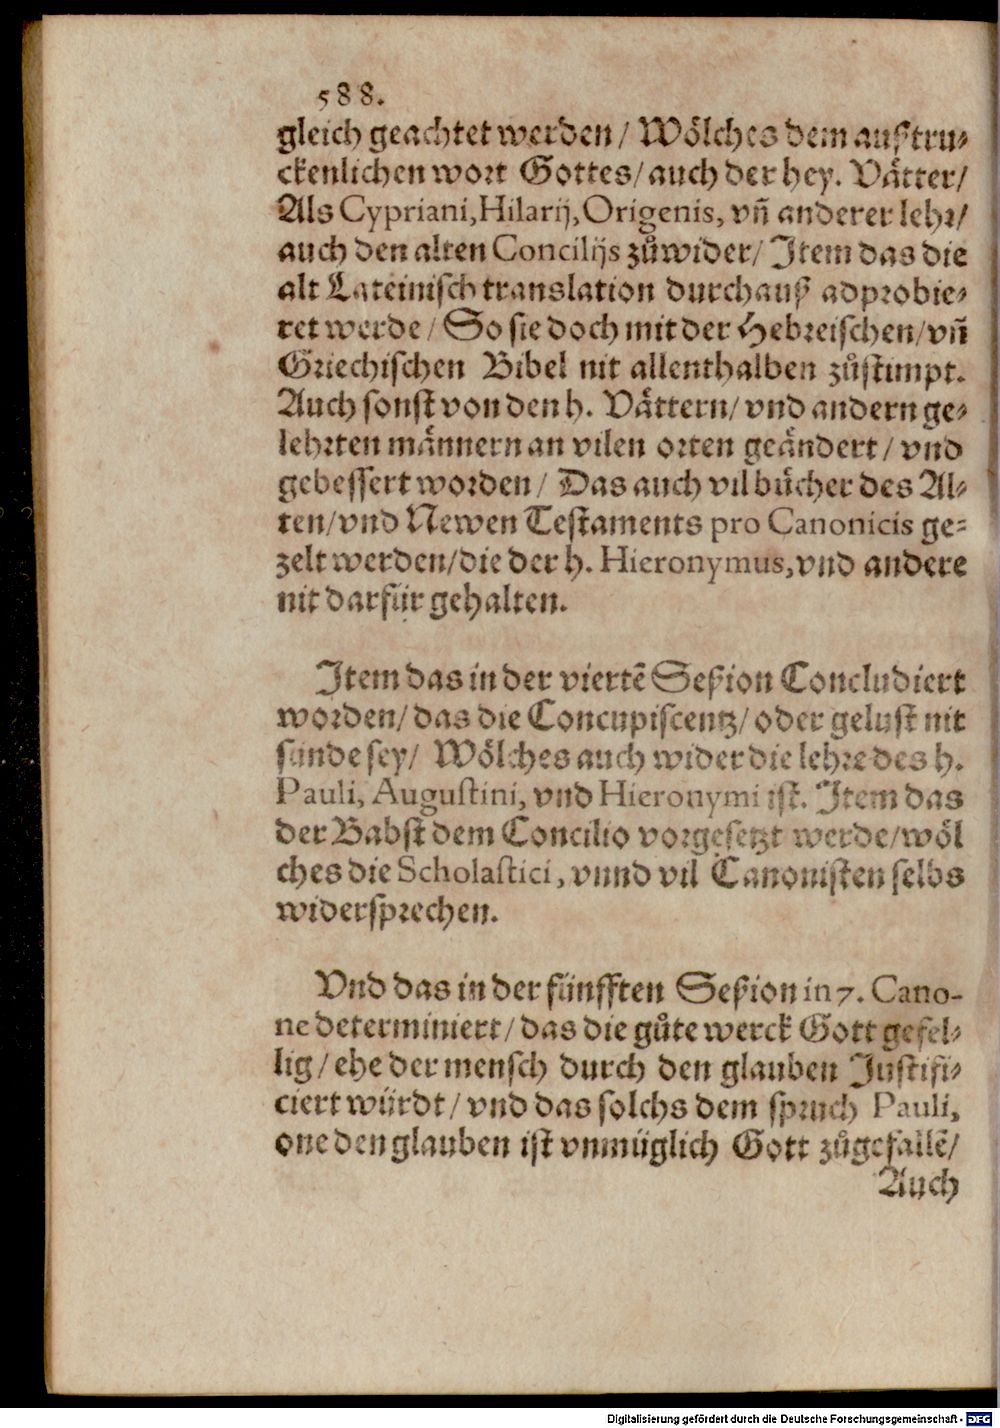 588.
gleich geachtet werden / Wölches dem außtru-
ckenlichen wort Gottes / auch der hey. Vätter /
Als Cypriani, Hilarij, Origenis, vñ anderer lehr /
auch den alten Concilijs zůwider / Item das die
alt Lateinisch translation durchauß adprobie-
ret werde / So sie doch mit der Hebreischen / vñ
Griechischen Bibel nit allenthalben zůstimpt.
Auch sonst von den h. Vättern / vnd andern ge-
lehrten männern an vilen orten geändert / vnd
gebessert worden / Das auch vil bücher des Al-
ten / vnd Newen Testaments pro Canonicis ge-
zelt werden / die der h. Hieronymus, vnd andere
nit darfür gehalten.
Item das in der viertẽ Seßion Concludiert
worden / das die Concupiscentz / oder gelust nit
sünde sey / Wölches auch wider die lehre des h.
Pauli, Augustini, vnd Hieronymi ist. Item das
der Babst dem Concilio vorgesetzt werde / wöl
ches die Scholastici, vnnd vil Canonisten selbs
widersprechen.
Vnd das in der fünfften Seßion in 7. Cano-
ne determiniert / das die gůte werck Gott gefel-
lig / ehe der mensch durch den glauben Justifi-
ciert würdt / vnd das solchs dem spruch Pauli,
one den glauben ist vnmüglich Gott zůgefallẽ /
Auch
Digitalisierung gefördert durch die Deutsche Forschungsgemeinschaft - DFG